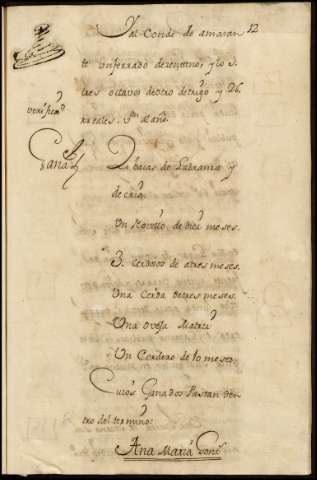 Y al Conde de amaran 12
te un ferrado de zenteno, y los
tres octavos de otro de trigo y 26.
rreales. Vn al año.
verificad
Ganad
2. bacas de Labranza y
de cria.
Un Novillo de diez meses.
3. cerdosos de a tres meses.
Una Cerda de tres meses.
Una oveja Matriz
Un Cordero de 10 meses
Cuios Ganados Pastan den
tro del termino:
Ana Maria Gonz